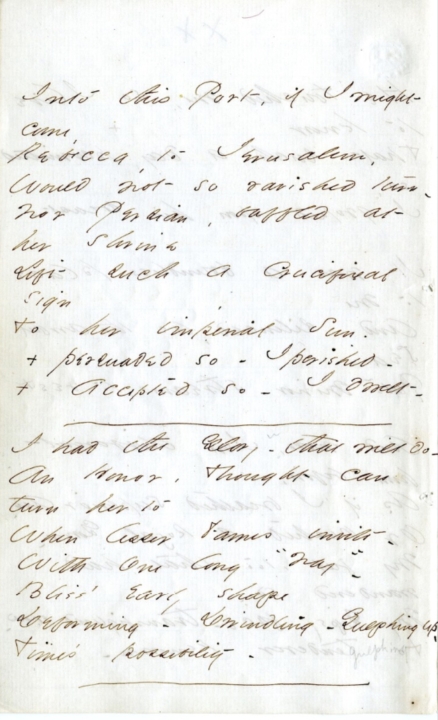 Into this Port, if I might
earn,
Rebecca, to Jerusalem,
Would not so ravished turn -
Nor Persian, baffled at
her shrine
Lift such a Crucifixal
sign
To her imperial Sun.
+ persuaded so - I perished -
+ Accepted so - I dwelt -
I had the Glory - that will do -
An Honor, Thought can
turn her to
When lesser Fames invite -
With one long "Nay" -
Bliss' Early shape
Deforming - Dwindling - Gulphing up -
Time's possibility -